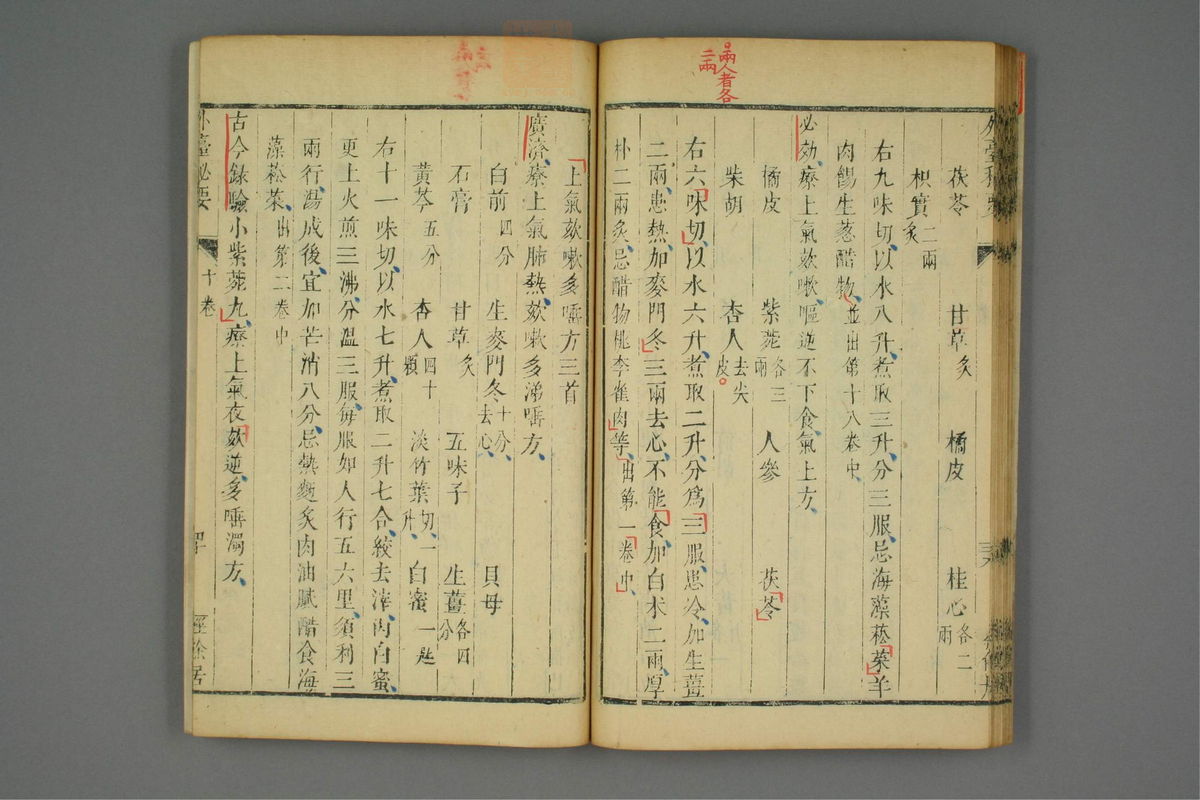 兩人者各
二兩
茯苓　甘草炙　橘皮　桂心各二兩
枳實二兩炙
右九味切以水八升煮取三升分三服忌海藻菘菜羊
肉餳生葱醋物並出第十八卷中
必効療上氣欬嗽嘔逆不下食氣上方
橘皮　紫菀各三兩　人參　茯苓
柴胡　杏人去尖皮
右六味切以水六升煮取二升分爲三服患冷加生薑
二兩患熱加麥門冬三兩去心不能食加白朮二兩厚
朴二兩炙忌醋物桃李雀肉等出第一卷中
上氣欬嗽多唾方三首
廣濟療上氣肺熱欬嗽多涕唾方
白前四分　生麥門冬十分去心　貝母
石膏　甘草炙　五味子　生薑各四分
黃芩五分　杏人四十顆　淡竹葉切一升　白蜜一匙
右十一味切以水七升煮取二升七合絞去滓內白蜜
更上火煎三沸分溫三服每服如人行五六里須利三
兩行湯成後宜加芒消八分忌熱麵炙肉油膩醋食海
藻菘菜出第二卷中
古今錄驗小紫菀丸療上氣夜欬逆多唾濁方
外臺秘要　十卷　經餘居